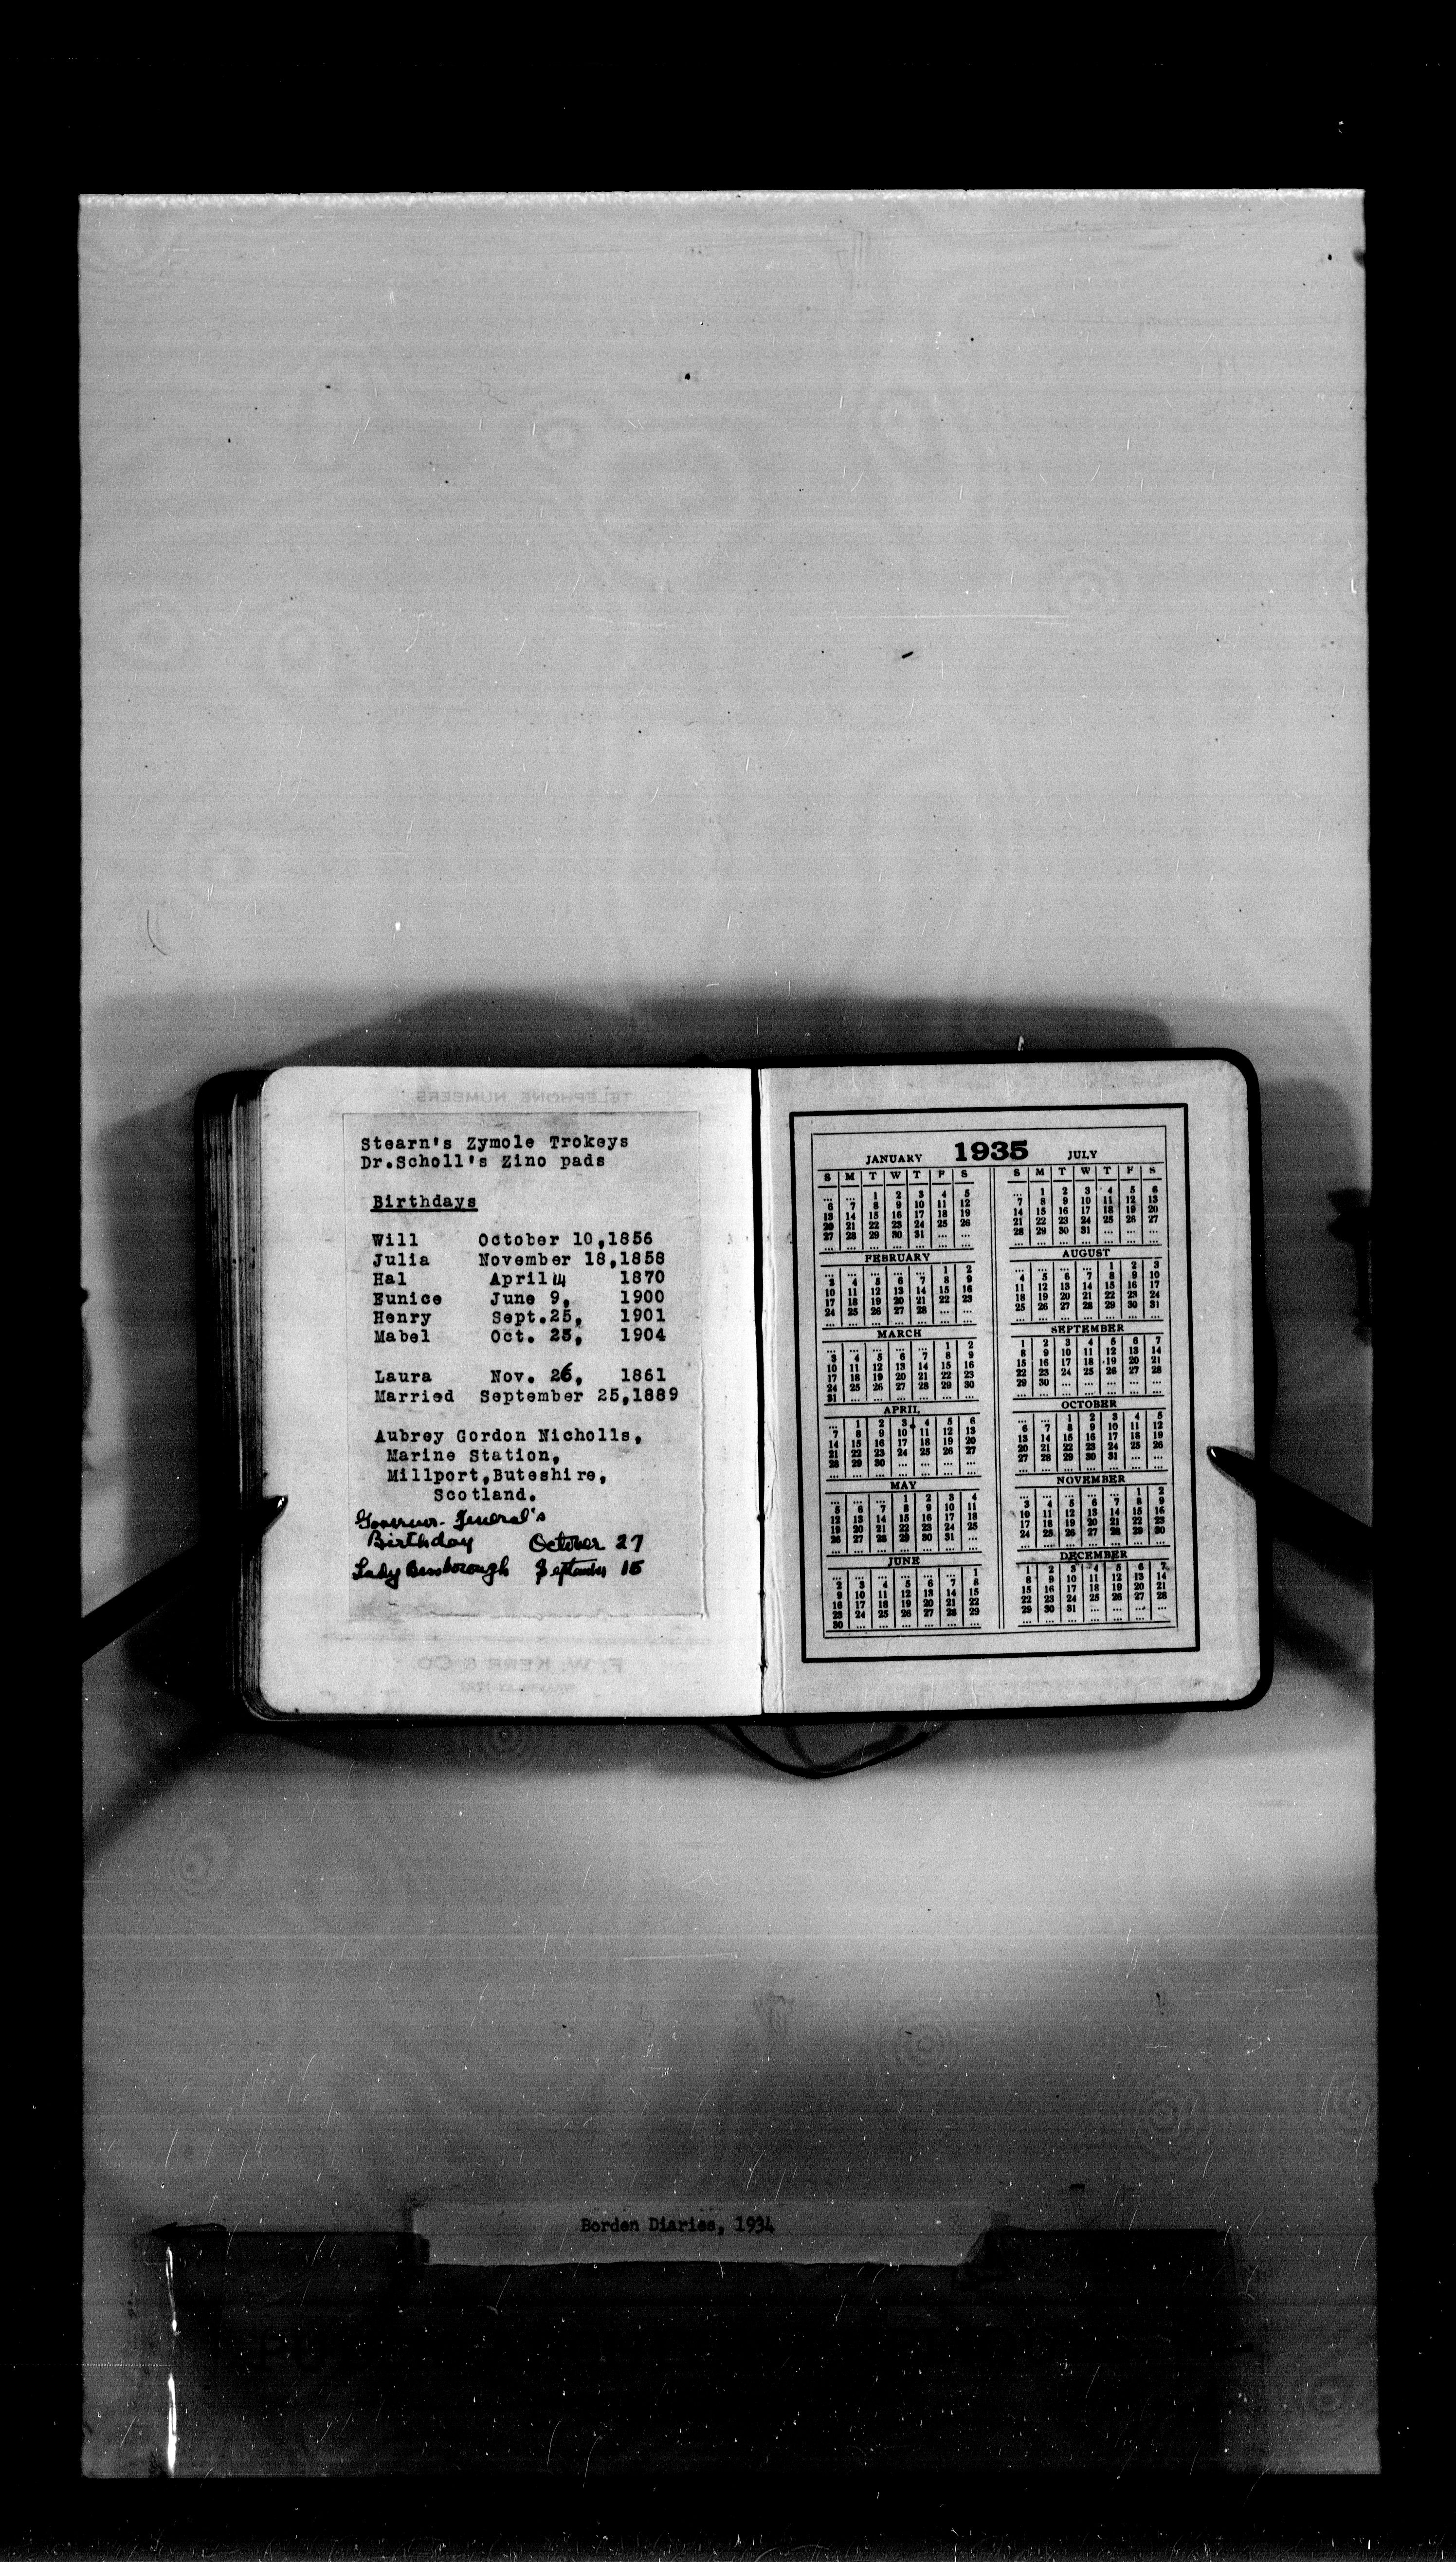 Stearn's Zymole Trokeys
Dr.Scholl's Zino pads
Birthdays
Will October 10,1856
Julia November 18,1858
Hal April 14 1870
Eunice June 9, 1900
Henry Sept.25, 1901
Mabel Oct. 25, 1904
Laura Nov. 26, 1861
Married September 25,1889
Aubrey Gordon Nicholls,
Marine Station,
Millport,Buteshire,
Scotland.
Governor-General's
Birthday October 27
Lady Bessborough September 15
1935
JANUARY
S M T W T F S
... ... 1 2 3 4 5
6 7 8 9 10 11 12
13 14 15 16 17 18 19
20 21 22 23 24 25 26
27 28 29 30 31 ... ...
FEBRUARY
... ... ... ... ... 1 2
3 4 5 6 7 8 9
10 11 12 13 14 15 16
17 18 19 20 21 22 23
24 25 26 27 28 ... ...
MARCH
... ... ... ... ... 1 2
3 4 5 6 7 8 9
10 11 12 13 14 15 16
17 18 19 20 21 22 23
24 25 26 27 28 29 30
31 ... ... ... ... ... ...
APRIL
... 1 2 3 4 5 6
7 8 9 10 11 12 13
14 15 16 17 18 19 20
21 22 23 24 25 26 27
28 29 30 ... ... ... ...
MAY
... ... ... 1 2 3 4
5 6 7 8 9 10 11
12 13 14 15 16 17 18
19 20 21 22 23 24 25
26 27 28 29 30 31 ...
JUNE
... ... ... ... ... ... 1
2 3 4 5 6 7 8
9 10 11 12 13 14 15
16 17 18 19 20 21 22
23 24 25 26 27 28 29
30 ... ... ... ... ... ...
JULY
S M T W T F S
... 1 2 3 4 5 6
7 8 9 10 11 12 13
14 15 16 17 18 19 20
21 22 23 24 25 26 27
28 29 30 31 ... ... ...
AUGUST
... ... ... ... 1 2 3
4 5 6 7 8 9 10
11 12 13 14 15 16 17
18 19 20 21 22 23 24
25 26 27 28 29 30 31
SEPTEMBER
1 2 3 4 5 6 7
8 9 10 11 12 13 14
15 16 17 18 19 20 21
22 23 24 25 26 27 28
29 30 ... ... ... ... ...
OCTOBER
... ... 1 2 3 4 5
6 7 8 9 10 11 12
13 14 15 16 17 18 19
20 21 22 23 24 25 26
27 28 29 30 31 ... ...
NOVEMBER
... ... ... ... ... 1 2
3 4 5 6 7 8 9
10 11 12 13 14 15 16
17 18 19 20 21 22 23
24 25 26 27 28 29 30
DECEMBER
1 2 3 4 5 6 7
8 9 10 11 12 13 14
15 16 17 18 19 20 21
22 23 24 25 26 27 28
29 30 31 ... ... ... ...
Borden Diaries, 1934